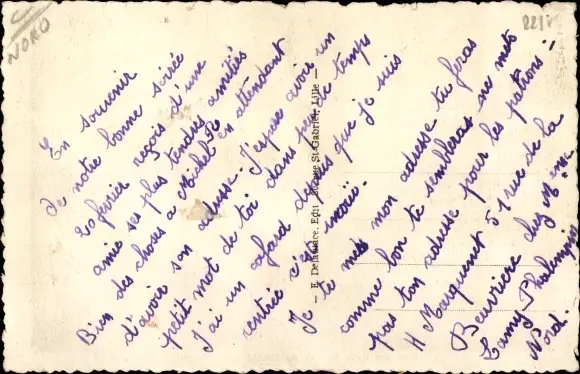 NORD
221
En souvenir
de notre bonne soirée
20 février reçois d'une
amie ses plus tendres amitiés
Bien des choses à Michel et en attendant
d'avoir son adresse. J'espère avoir un
petit mot de toi dans peu de temps
J'ai un cafard depuis que je suis
rentrée c'est inouïe.
Je te mets mon adresse tu feras
comme bon te semblera ne mets
pas ton adresse pour les patrons :
H Marquent 5 rue de la
Beuvrière chez Mme
Lamy
Nord.
— E. Delattace, Edit. Avenue St-Gabriel, Lille —